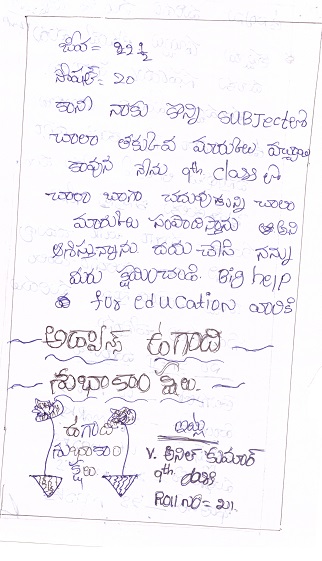 జీవ = 22½
సోషల్ = 20
కాని నాకు ఇన్ని SUBJectలో
చాలా తక్కువ మార్కులు వచ్చాయి
కావున నేను 9th class లో
చాలా బాగా చదువుకున్ని చాలా
మార్కులు సంపాదిస్తాను అని
ఆశిస్తున్నాను దయచేసి నన్ను
మరు క్షమించండి. Big help
for education వారికి
అడ్వాన్స్ ఉగాది
శుభాకాంక్షలు.
ఉగాది
శుభాకాం
క్షలు
ఇట్లు
V. అనిల్ కుమార్
9th class
Roll no = 21